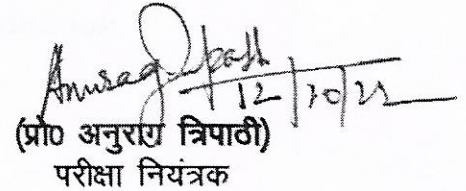 Anurag Tripathi
12/10/22
(प्रो० अनुराग त्रिपाठी)
परीक्षा नियंत्रक